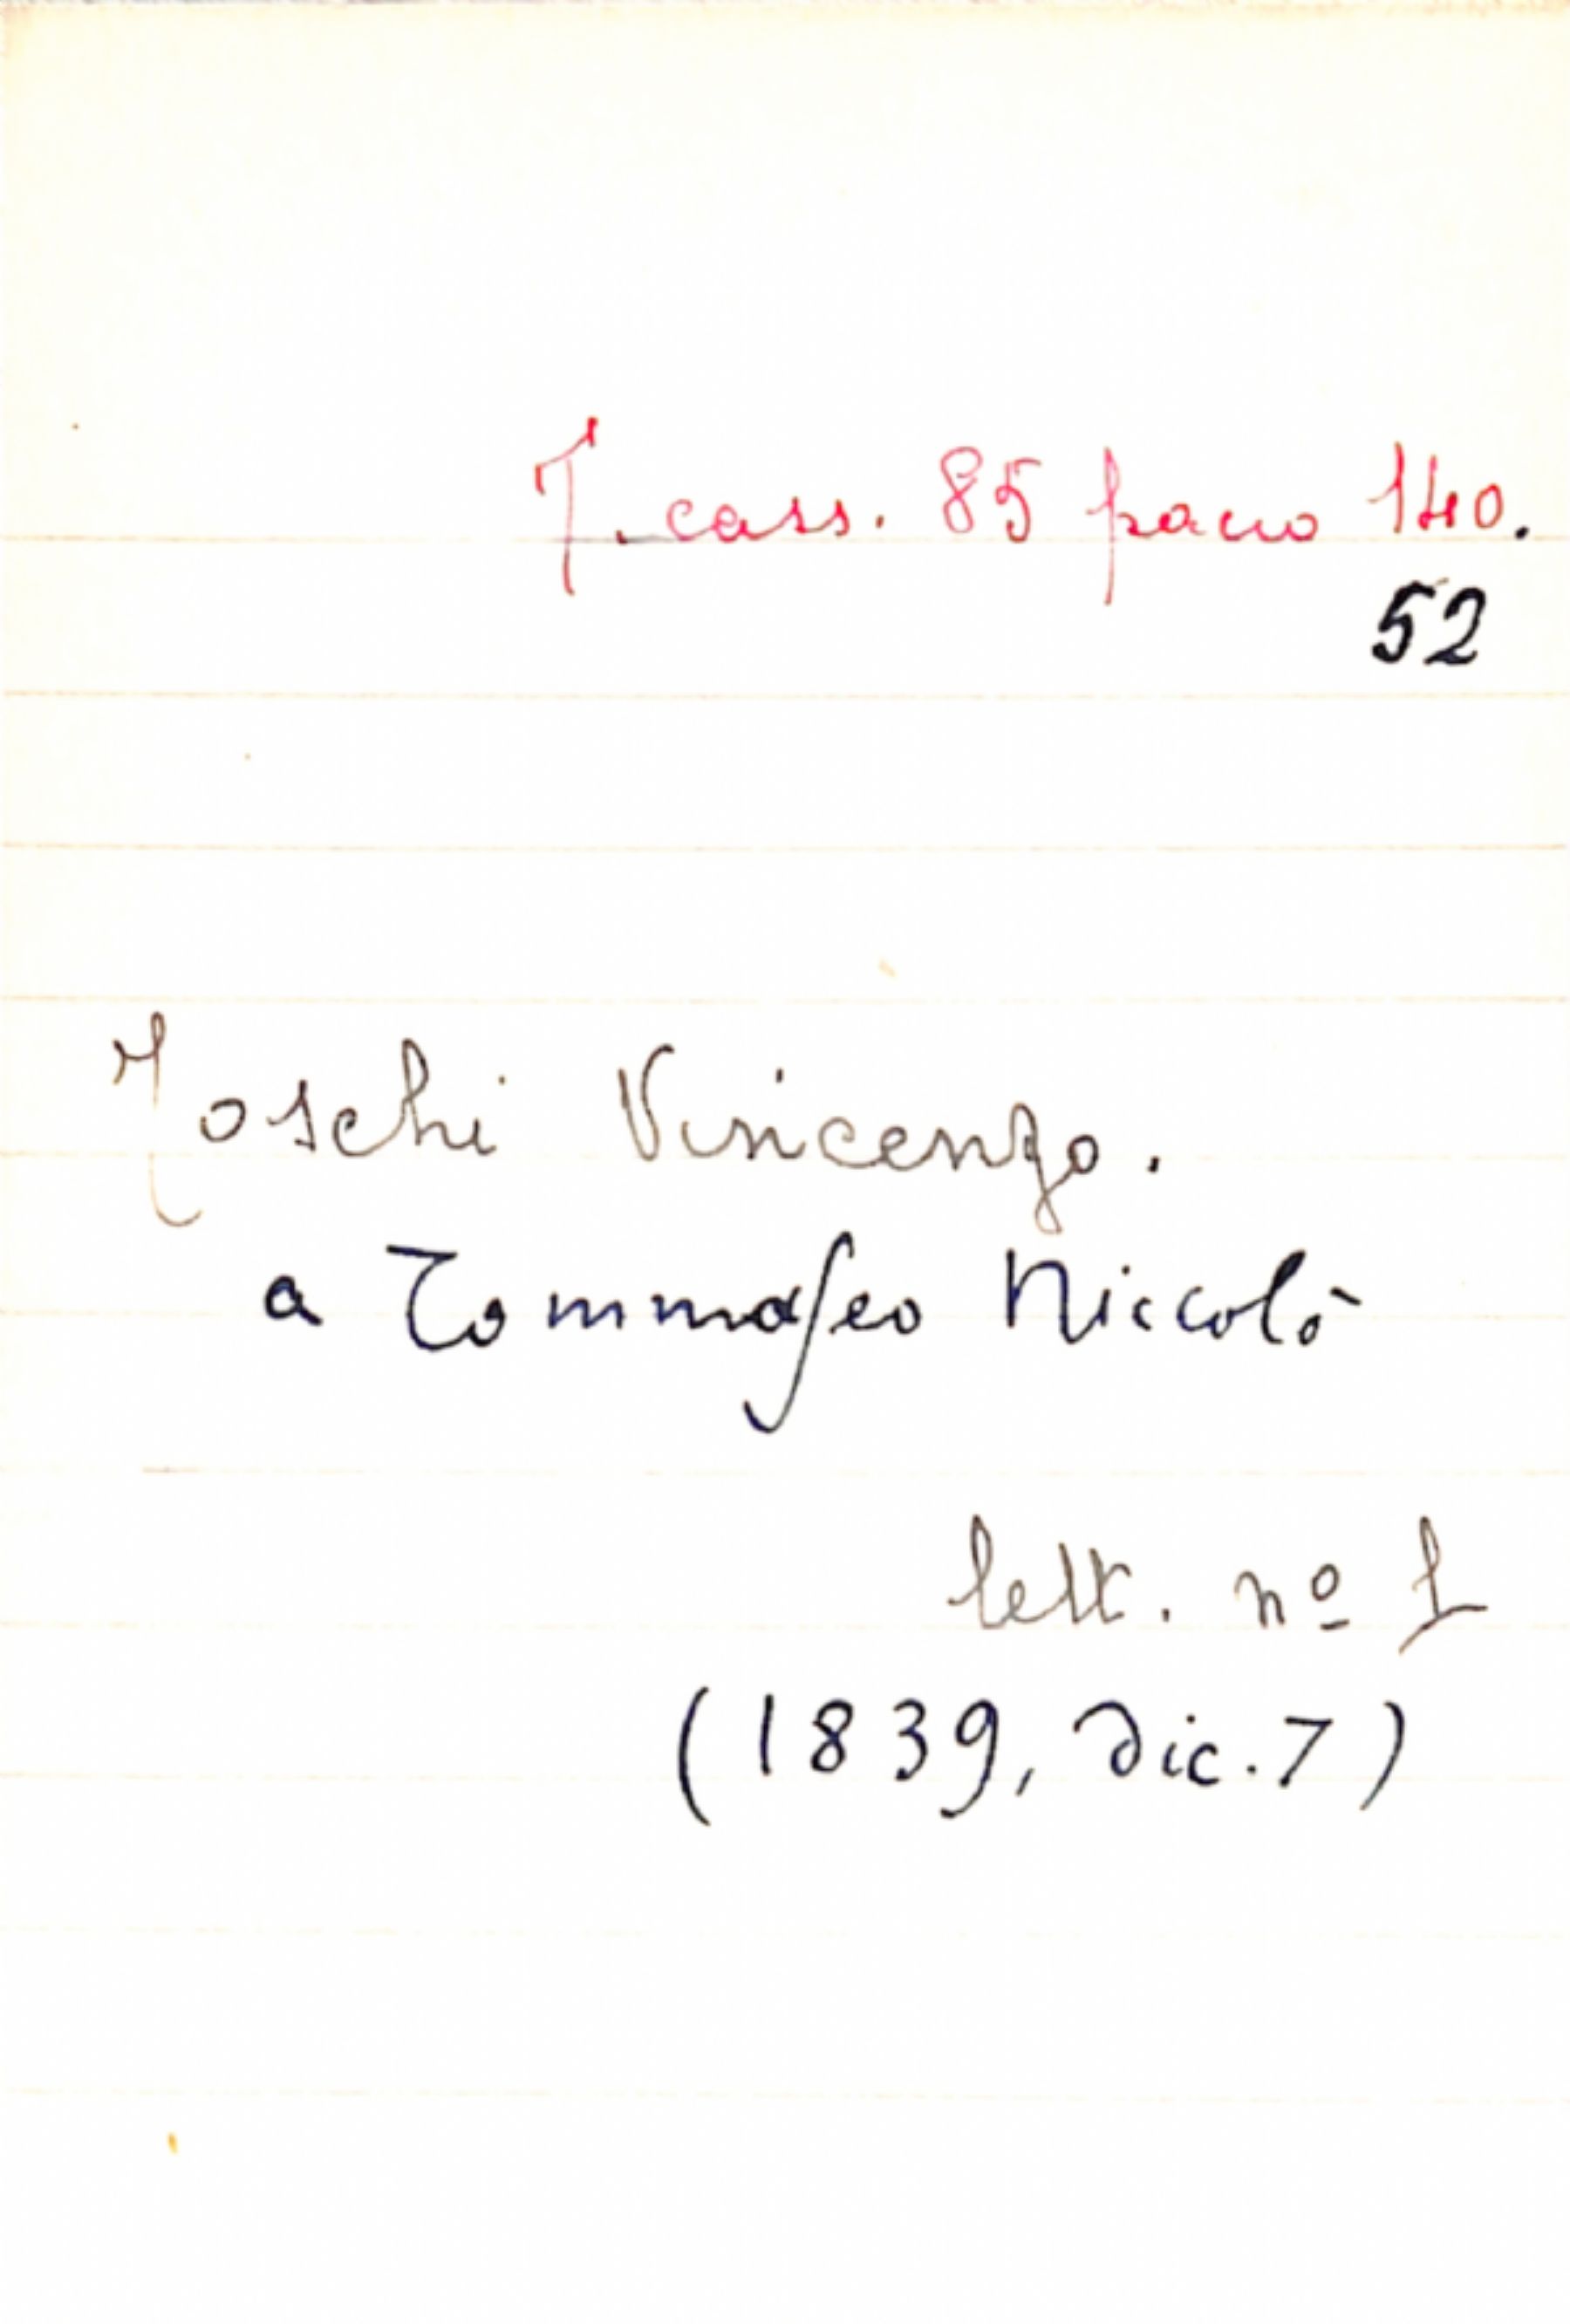 T. cass. 85 pacco 140.
52
Toschi Vincenzo.
a Tommaseo Niccolò
lett. nº 1
(1839, Dic. 7)